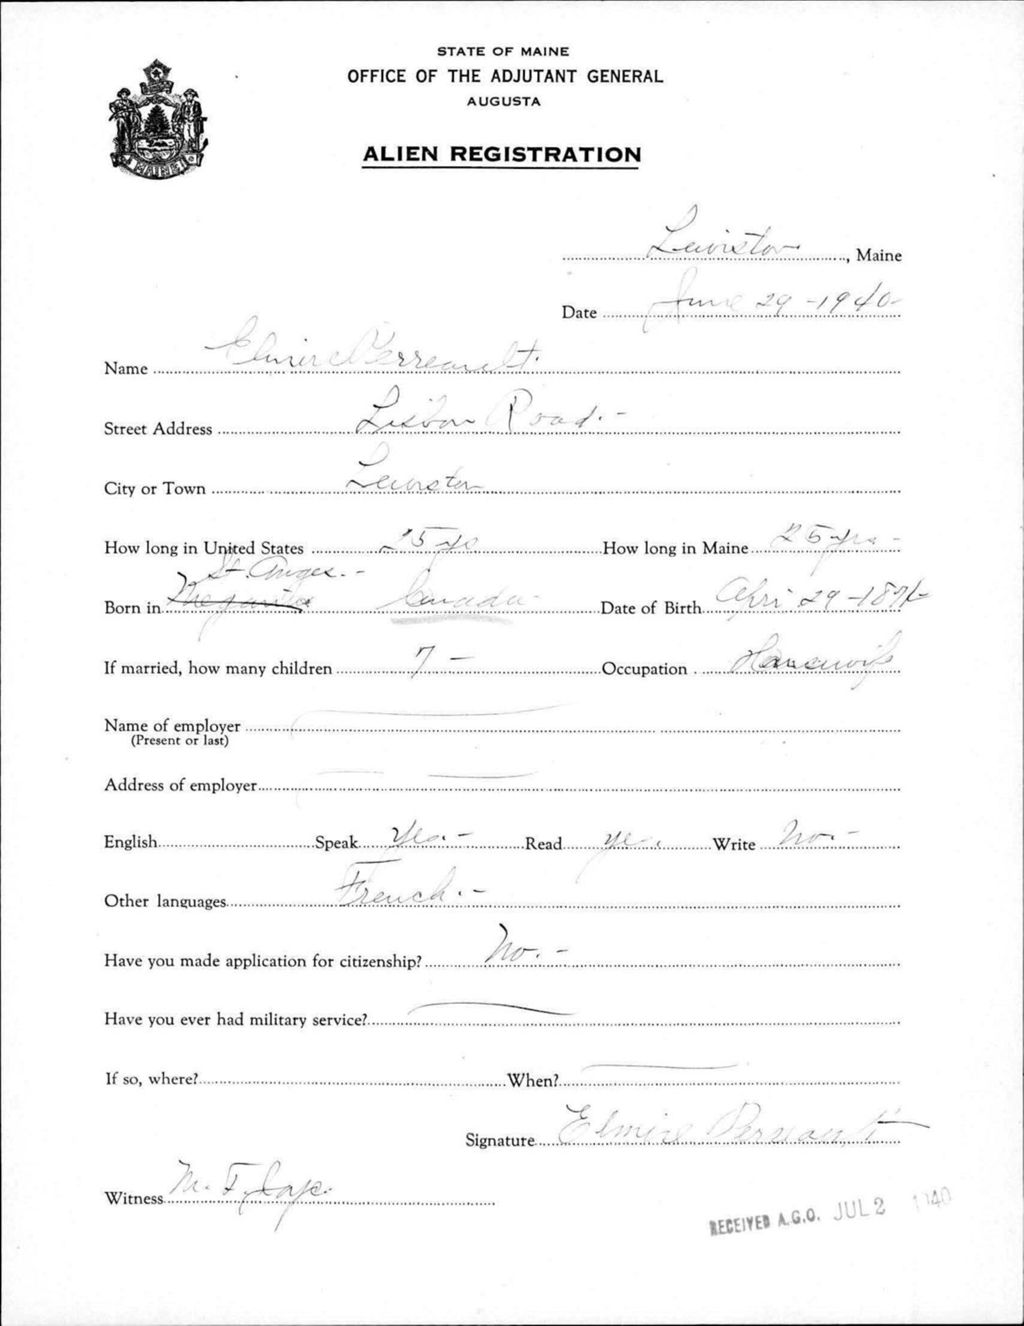 STATE OF MAINE
OFFICE OF THE ADJUTANT GENERAL
AUGUSTA
MAINE
ALIEN REGISTRATION
Lewiston, Maine
Date June 29 - 1940 -
Name Elmire Perreault.
Street Address Lisbon Road. -
City or Town Lewiston
How long in United States 25 yrs How long in Maine 25 yrs -
St. Anges. -
Born in Megantic Canada - Date of Birth April 29 - 1871 -
If married, how many children 7 - Occupation Housewife
Name of employer
(Present or last)
Address of employer
English Speak Yes. - Read yes. Write No. -
Other languages French. -
Have you made application for citizenship? No. -
Have you ever had military service?
If so, where? When?
Signature Elmire Perreault
Witness M. F.
RECEIVED A.G.O. JUL 2 1940